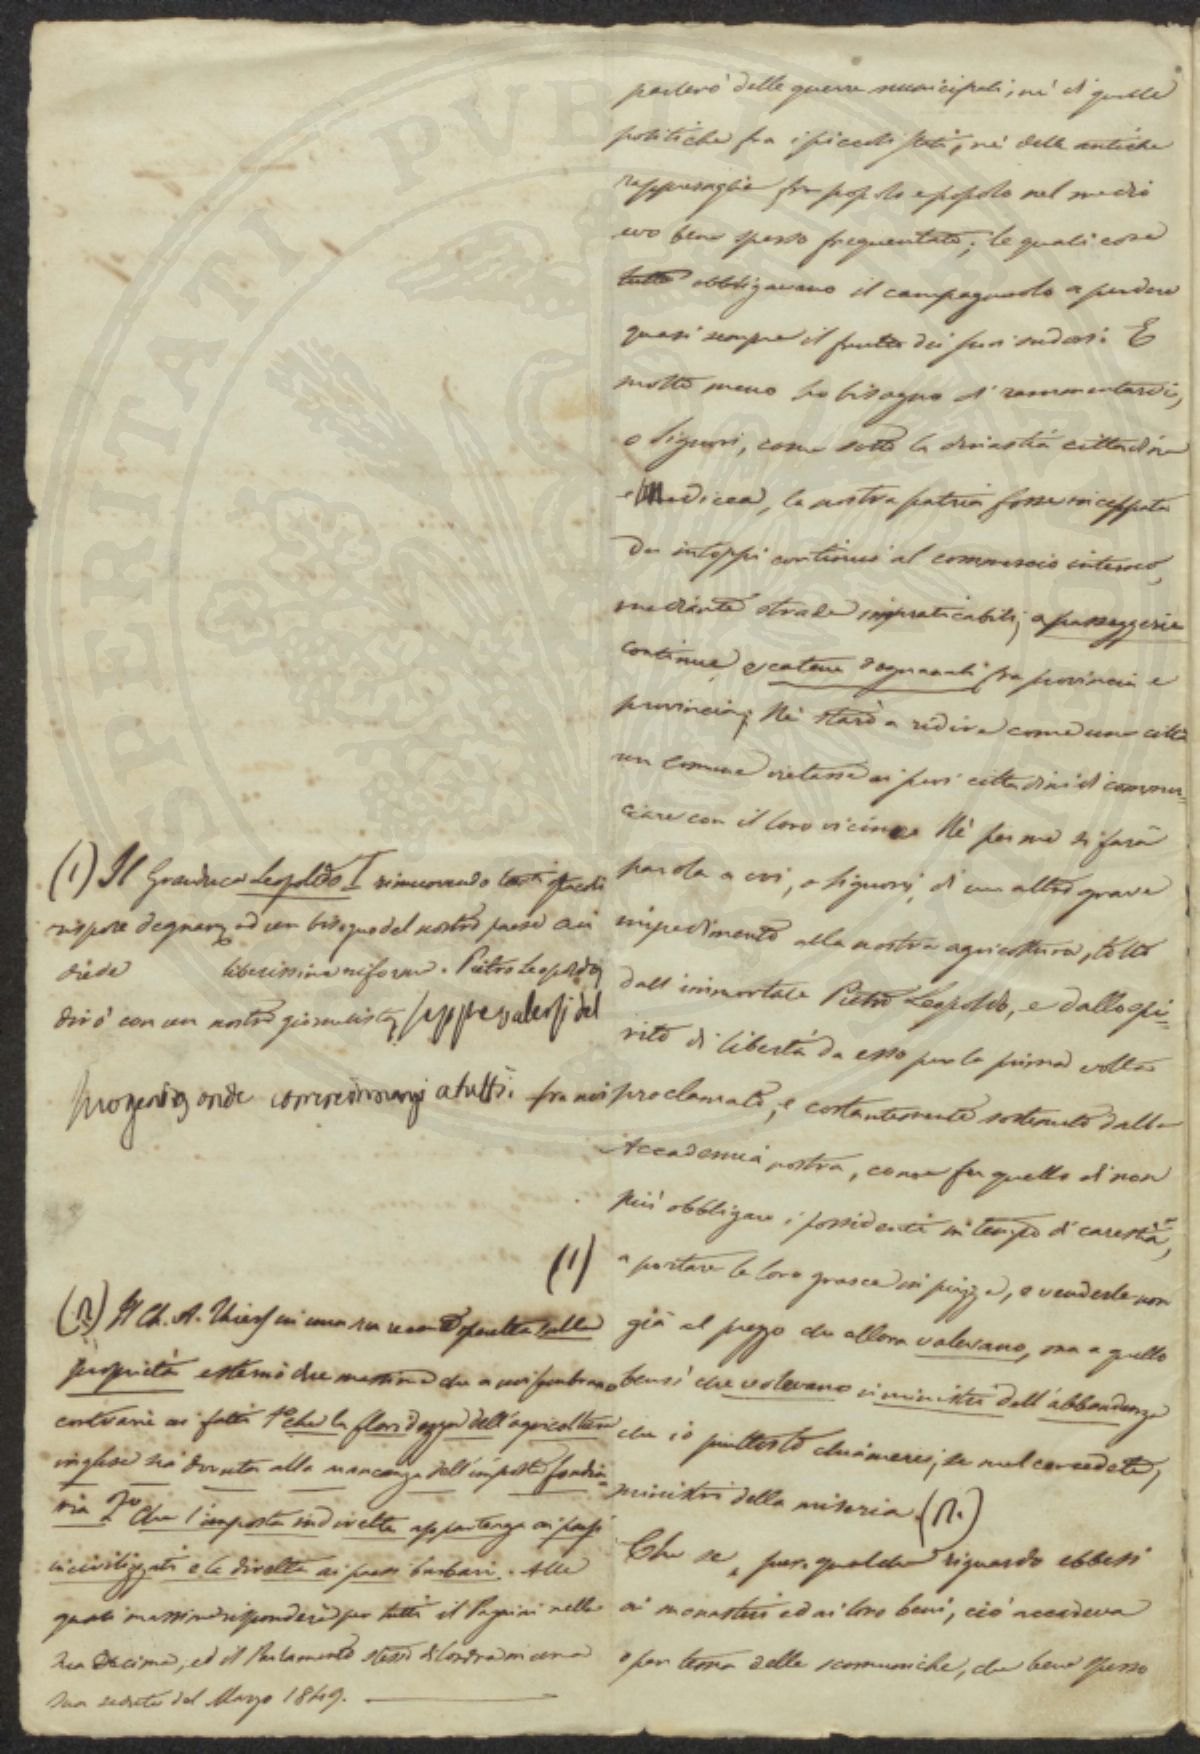 parlerò delle guerre municipali, nè di quelle
politiche fra i piccoli stati, nè delle antiche
rappresaglie fra popolo e popolo nel medio
evo bene spesso frequentate; le quali cose
tutte obbligavano il campagnuolo a perdere
quasi sempre il frutto dei suoi sudori. E
molto meno ho bisogno di rammentarvi,
o Signori, come sotto la dinastia cittadina
e Medicea, la nostra patria fosse inceppata
da intoppi continui al commercio interno,
mediante strade impraticabili, a passeggerie
continue, e catene doganali fra provincia e
provincia; Nè starò a ridire come una città
un Comune vietasse ai suoi cittadini di commer-
ciare con il loro vicino. Nè per me si farà
parola a voi, o Signori, di un altro grave
impedimento alla nostra agricoltura, tolto
dall'immortale Pietro Leopoldo, e dallo spi-
rito di libertà da esso per la prima volta
fra noi proclamato, e costantemente sostenuto dalla
Accademia nostra, come fu quello di non
più obbligare i possidenti in tempo di carestia,
a portare le loro grasce in piazza, e venderle non
(1)
già al prezzo che allora valevano, ma a quello
bensì che volevano i ministri dell'abbondanza
che io piuttosto chiamerei, se mel concedete,
ministri della miseria. (2)
Che se, per qualche riguardo ebbesi
ai monasteri ed ai loro beni, ciò accadeva
o per tema delle scomuniche, che bene spesso
(1) Il Granduca Leopoldo I rimuovendo tanti ostacoli
ad un bisogno del nostro paese
diede liberissima riforma. Pietro Leopoldo
dirò con un nostro giornalista, seppe valersi del
onde a tutti.
(2) Il Ch. A. Thiers in una sua recente operetta sulla
proprietà esternò due massime che a noi sembrano
contrarie ai fatti 1º che la floridezza dell'agricoltura
inglese sia dovuta alla mancanza dell'imposta fondia-
ria 2º Che l'imposta indiretta appartenga ai paesi
inciviliti e la diretta ai paesi barbari. Alle
quali massime risponderà per tutti il Pagnini nella
sua Decima, ed il Parlamento stesso di Londra in una
sua seduta del Marzo 1849.